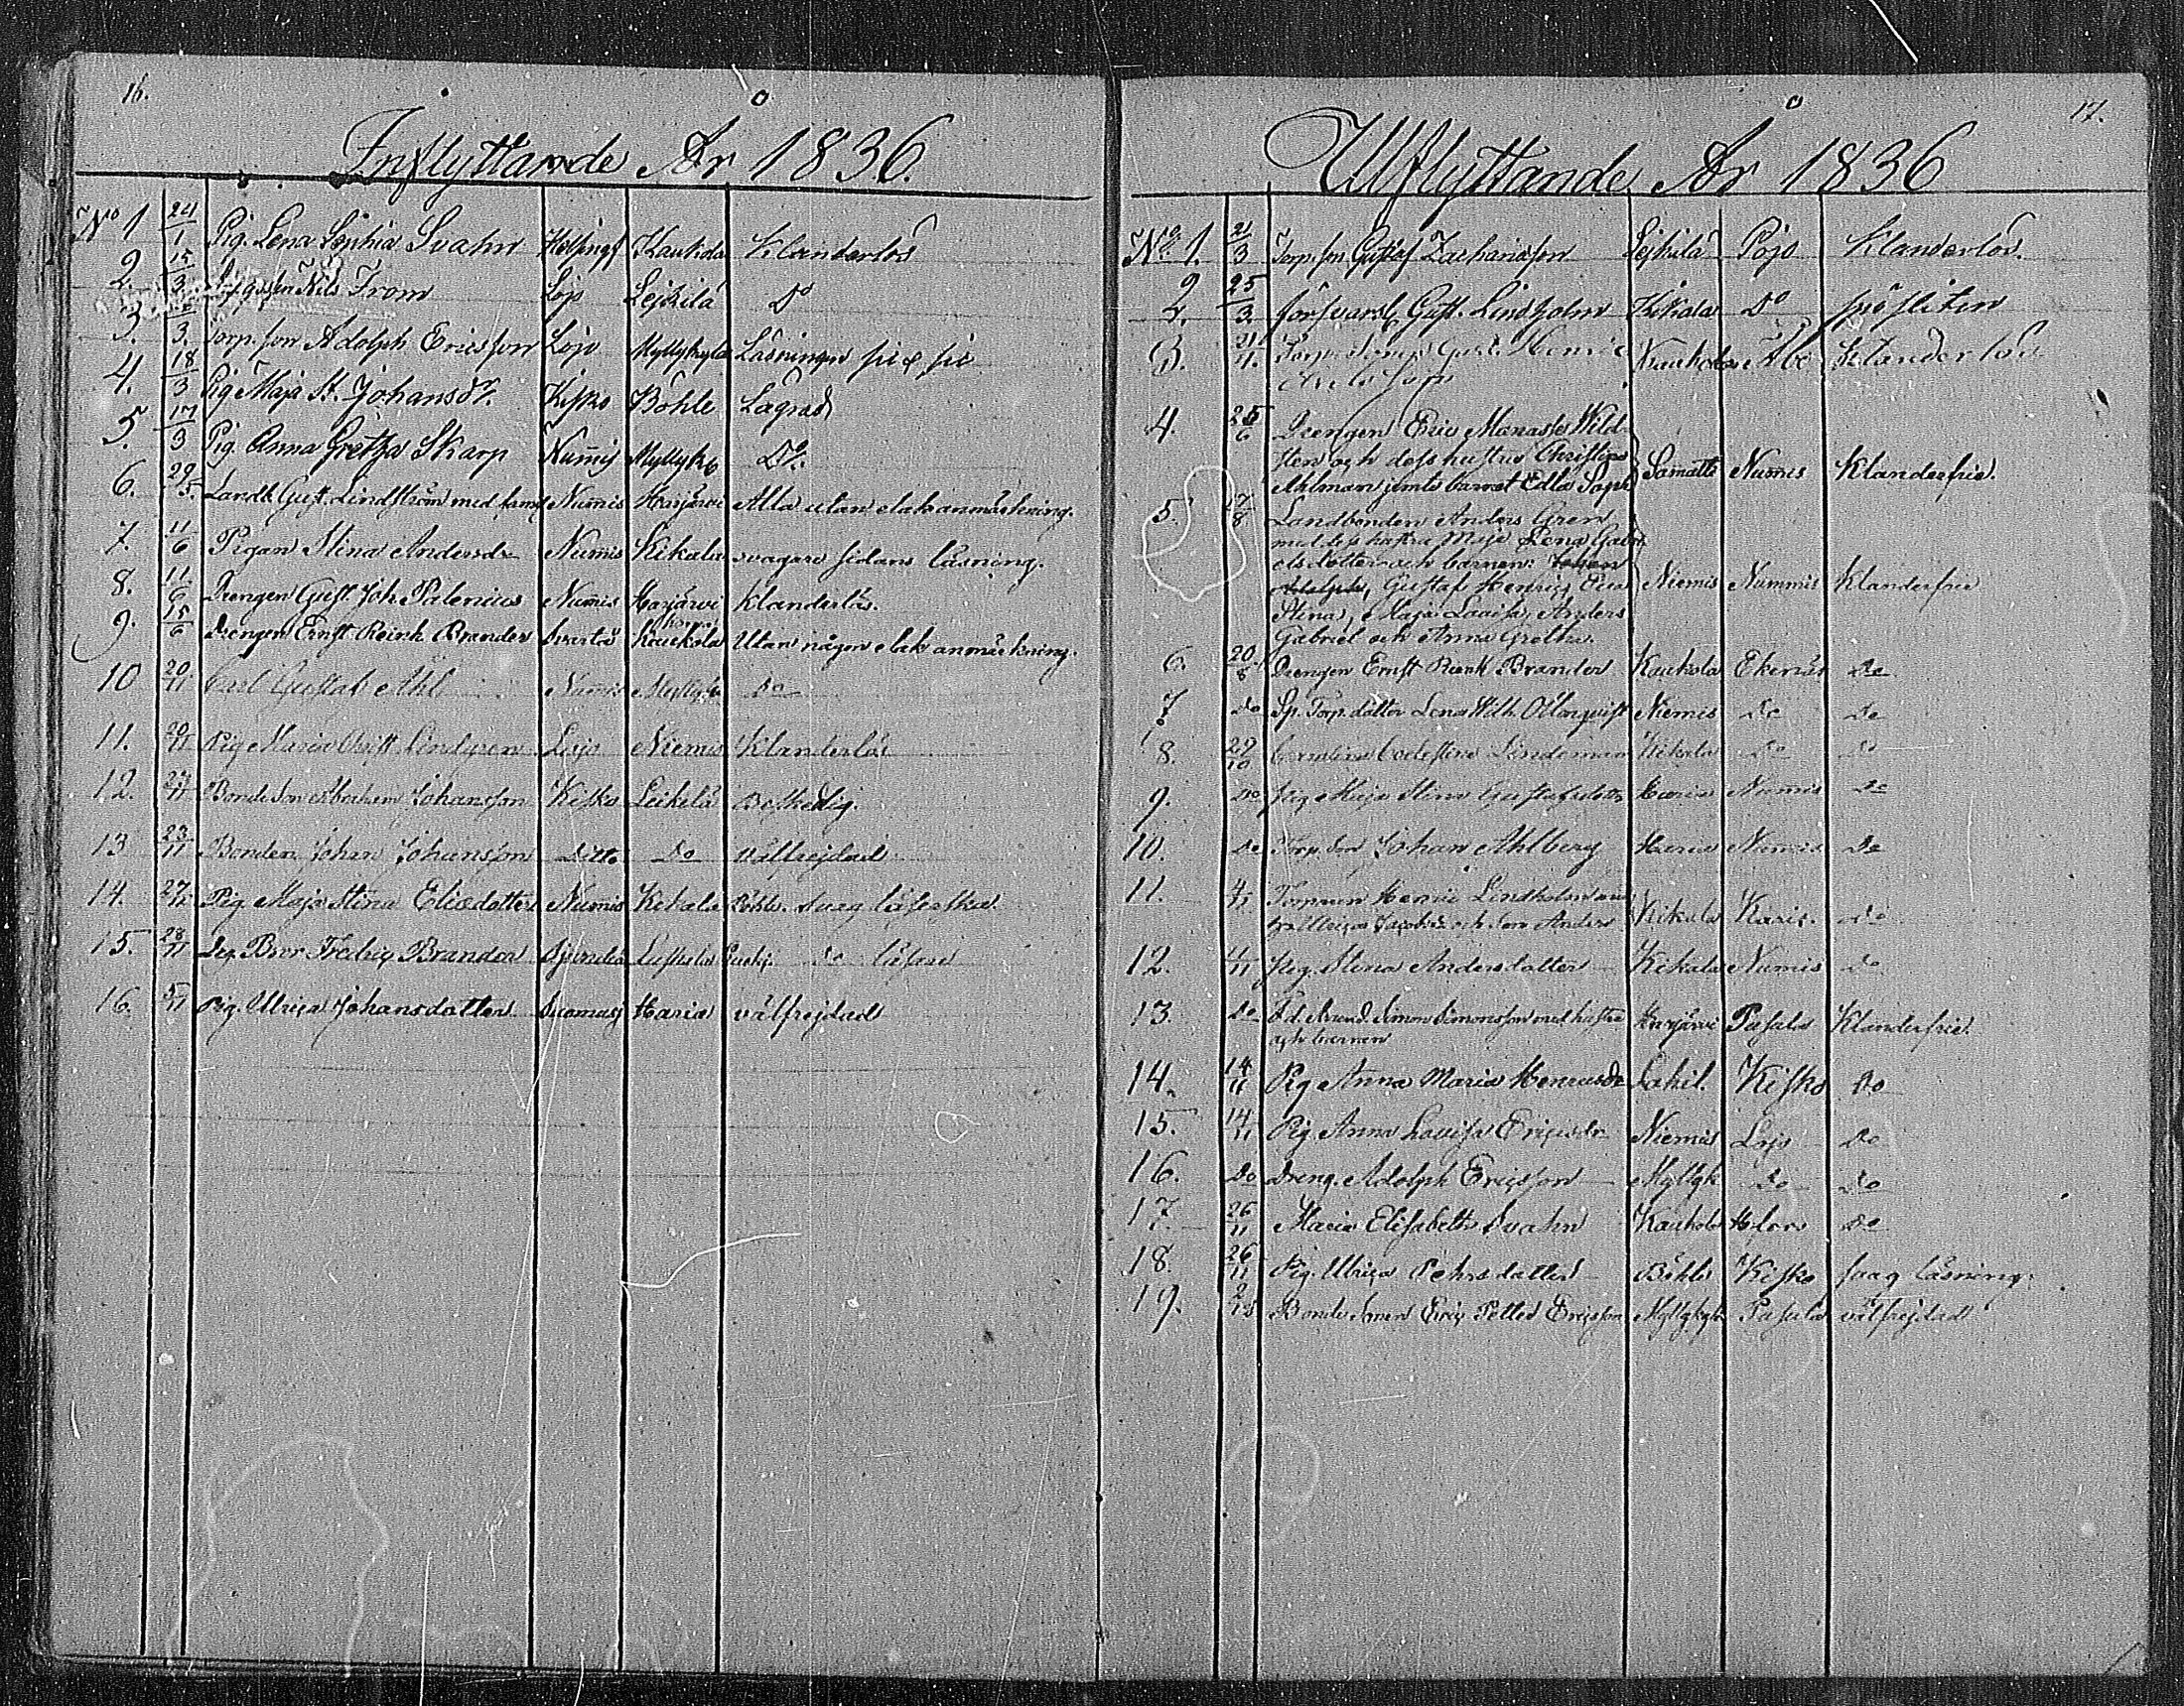 16.
Inflyttande År 1836.
No 1 24/1 Pig. Lena Sophia Svahn Helsingf Kaukola Klanderlös
2. 15/3 Nils From Lojo Leikilä Do
3. /3. Torp. son Adolph Ericsson Lojo Myllykylä Läsningen
4. 18/3 Pig Maja St. Johansdr. Kisko Böhle Lagvad
5. 17/3 Pig. Anna Gretha Skarp Nummis Myllyk Do.
6. 29/5. Landb. Gust. Lindström med famj Nummis Harjärvi Alla utan elak anmärkning.
7. 11/6 Pigan Stina Andersdr Nummis Kikala svagare sidans läsning.
8. 11/6 Drengen Gust. Joh. Palenius Nummis Harjärvi klanderlös.
9. 15/6 Drengen Ernst Reinh. Brander Svartå Kaukola Utan någon elak anmärkning.
10 20/11 Carl Gustaf Ahl Nummis Myllyk Do
11. 20/11 Pig Maria Christ. Lindgren Lojo Niemis Klanderlös
12. 27/11 Bonde Son Abraham Johansson Kisko Leikilä Beskedlig.
13 23/11 Bonden Johan Johansson Ditto Do välfrejdad
14. 27/11 Pig. Maja Stina Eliedotter Nummis Kikala Böhle. svag
15. 28/11 Dreg. Bror Fredric Brander Sjundeå Do
16. 5/11 Pig. Ulrica Johansdotter Suomusj Haria välfrejdad
17.
Utflyttande År 1836
No. 1. 21/3 Torp. son Gustaf Zachariasson Leikilä Pojo Klanderlös.
2. 25/3 Försvarsk. Gust. Lindholm Kikala Do
3. 21/4. Torp. Gust. Henric Kaukola Åbo Klanderlös
4. 25/6 Drengen Eric Manasse Wild-
sten och dess hustru Christina
Ahlman jemte barnet Edla Soph Samatti Nummis Klanderfrie.
5. 27/8 Landbonden Anders Gren
med dess hustru Maja Lena Gabri
els dotter och barnen: Johan
Adolph, Gustaf Henric, Eva Niemis Nummis Klanderfrie
Stina, Maja Lovisa, Anders
Gabriel och Anna Gretha.
6. 20/8 Drengen Ernst Reinh Brander Kaukola Ekenäs Do
7. Do Sp. Torp. dotter Lena Wilh. Niemis Do Do
8. 29/10 Carolina Coelestina Lindeman Kikala Do Do
9. Do Pig. Maja Stina Gustafsdotter Haria Nummis Do
10. Do Torp. Son Johan Ahlberg Haria Nummis Do
11. 4/11 Torparen Henric Lindholm med
Ulrica Jacobsdr och Son Anders Kikala Karis. Do
12. /11 Pig. Stina Andersdotter Kikala Nummis Do
13. Do F.d. Simon Simonsson med hustru Harjärvi Pusula Klanderfrie
och barnen
14. 14/11 Pig Anna Maria Henricsdr Lahil. Kisko Do
15. 14/11 Pig. Anna Lovisa Ericsdr Niemis Lojo Do
16. Do Dreng. Adolph Ericsson Myllyk Do Do
17. 26/11 Maria Elisabeth Svahn Kaukola H:fors Do
18. 26/11 Pig. Ulrica Pehrsdotter Böhle Kisko svag läsning.
19. 2/12 Bonde Sonen Eric Petter Ericsson Myllykyl Pusula välfrejdad